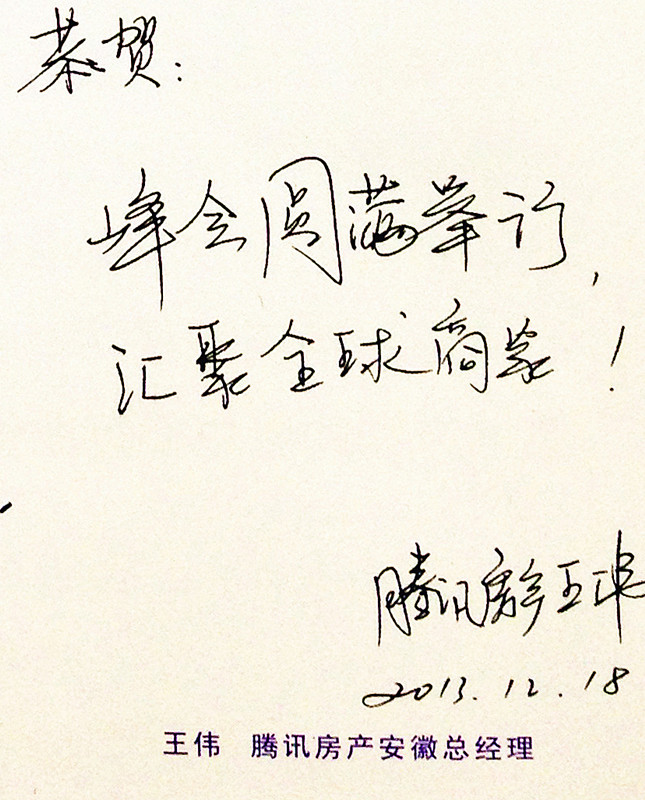 恭贺:
峰会圆满举行,
汇聚全球商家!
腾讯房产王伟
2013.12.18
王伟 腾讯房产安徽总经理